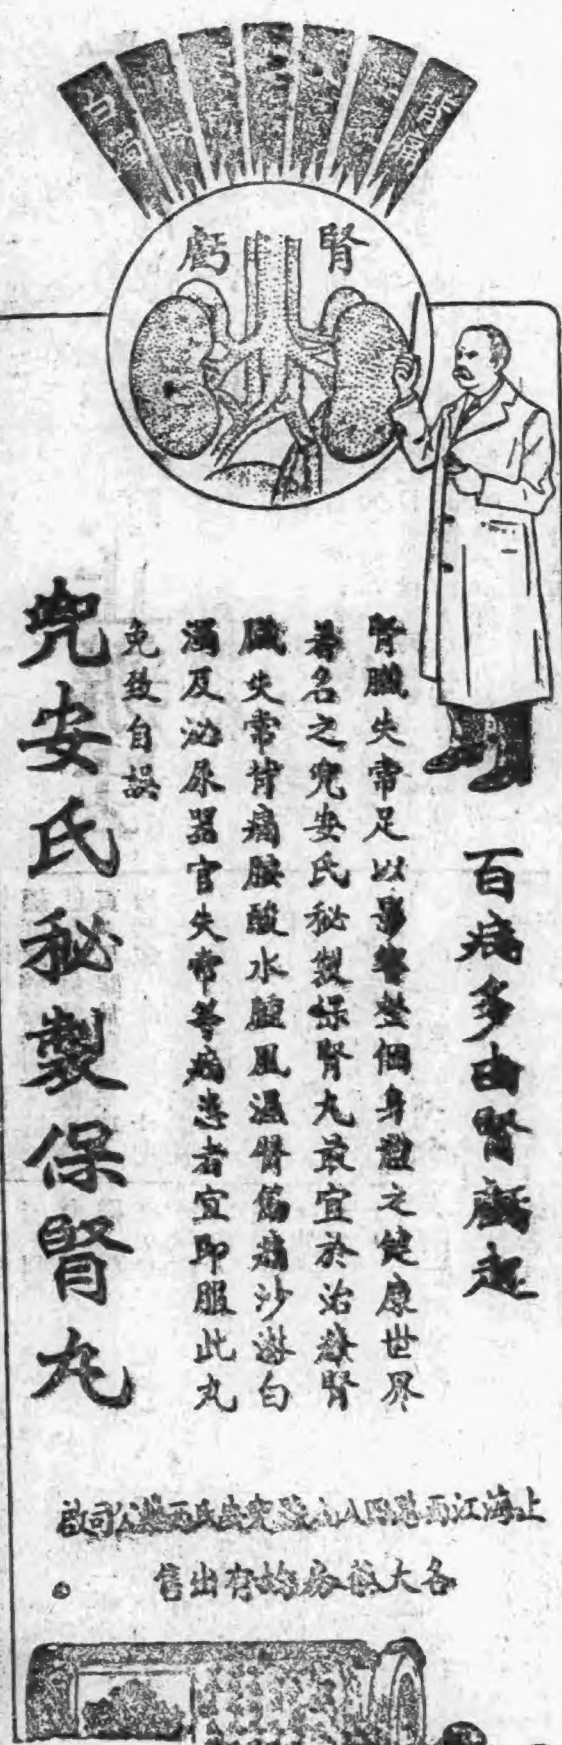 腎虧
百病多由腎虧起
腎臟失常足以影響整個身體之健康世界
著名之兜安氏秘製保腎丸最宜於治療腎
臟失常背痛腰酸水腫風濕骨節痛沙淋白
濁及泌尿器官失常等病患者宜即服此丸
免致自誤
兜安氏秘製保腎丸
上海江西路四八六號兜安氏西藥公司啟
各大藥房均有出售